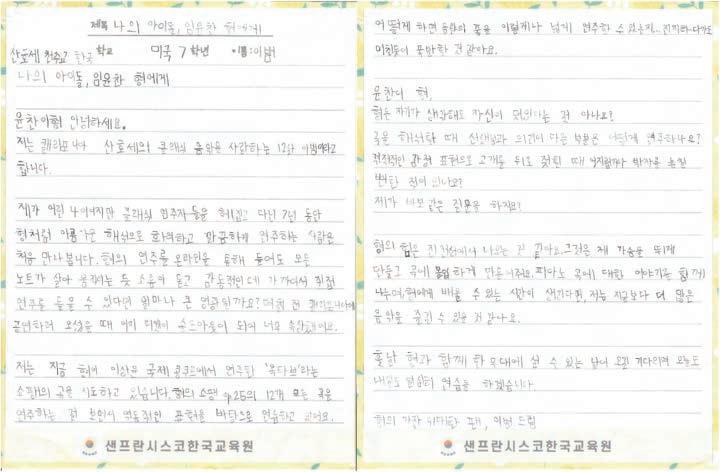 제목 나의 아이돌, 임윤찬 형에게
산호세 천주교 한국 학교 미국 7 학년 이름:이범
나의 아이돌, 임윤찬 형에게
윤찬이형 안녕하세요.
저는 캘리포니아 산호세의 클래식 음악을 사랑하는 12살 이범이라고
합니다.
제가 어린 나이이지만 클래식 연주자들을 헤집고 다닌 7년 동안
형처럼 아름다운 해석으로 화려하고 깔끔하게 연주하는 사람은
처음 만나봅니다. 형의 연주를 온라인을 통해 들어도 모든
노트가 살아 움직이는 듯 소름이 돋고 감동적인데 가까이서 직접
연주를 들을 수 있다면 얼마나 큰 영광일까요? 며칠 전 캘리포니아에
공연하러 오셨을 때 이미 티켓이 솔드아웃이 되어 너무 속상했어요.
저는 지금 형이 이상은 국제 콩쿠르에서 연주한 '옥타브'라는
쇼팽의 곡을 시도하고 있습니다. 형의 쇼팽 op.25의 12개 모든 곡을
연주하는 걸 보면서 역동적인 표현을 바탕으로 연습하고 있어요.
어떻게 하면 음악의 폭을 이렇게나 넓게 연주할 수 있는지..
미친듯이 폭발한 것 같아요.
윤찬이 형,
형은 자기가 상상해도 자신이 멋있다는 걸 아나요?
곡을 해석할 때 선생님과 의견이 다른 부분은 어떻게 연주하나요?
격정적인 감정 표현으로 고개를 뒤로 젖힐 때 어지럽거나 박자를 놓친
적이 있나요?
제가 바보같은 질문을 하지요?
형의 힘은 진정성에서 나오는 것 같아요. 그것은 제 가슴을 뛰게
만들고 곡에 몰입하게 만들어줘요. 피아노 곡에 대한 이야기를 함께
나누며, 형에게 배울 수 있는 시간이 생긴다면, 저는 지금보다 더 많은
음악을 즐길 수 있을 것 같아요.
훗날 형과 함께 한 무대에 설 수 있는 날이 오길 기다리며 오늘도
내일도 열심히 연습을 하겠습니다.
형의 가장 커다란 팬, 이범 드림
샌프란시스코한국교육원
샌프란시스코한국교육원